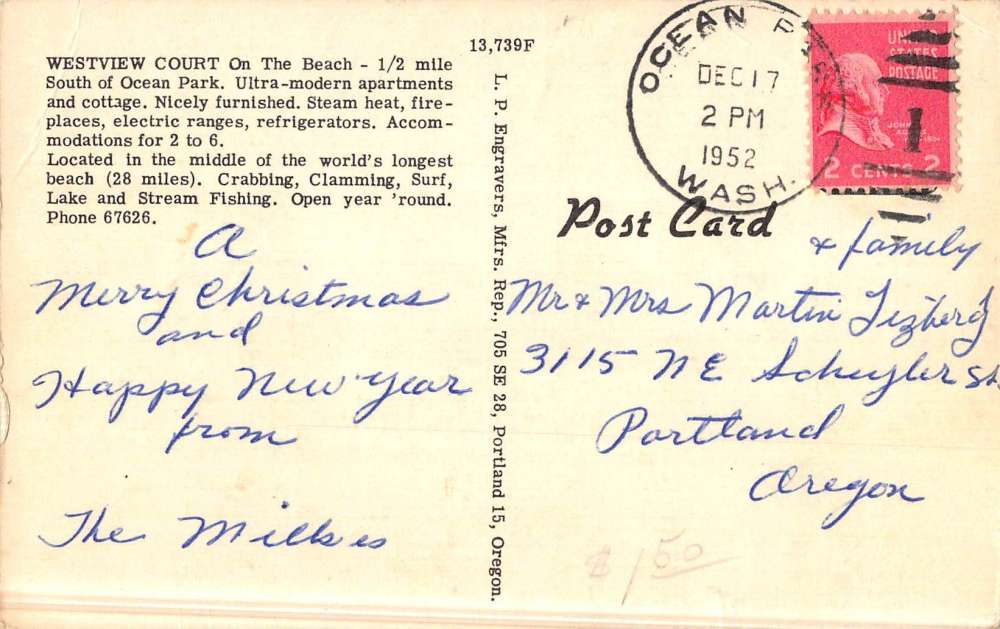 13,739F
WESTVIEW COURT On The Beach - 1/2 mile
South of Ocean Park. Ultra-modern apartments
and cottage. Nicely furnished. Steam heat, fire-
places, electric ranges, refrigerators. Accom-
modations for 2 to 6.
Located in the middle of the world's longest
beach (28 miles). Crabbing, Clamming, Surf,
Lake and Stream Fishing. Open year 'round.
Phone 67626.
A
Merry Christmas
and
Happy New Year
from
The
L. P. Engravers, Mfrs. Rep., 705 SE 28, Portland 15, Oregon.
OCEAN
DEC 17
2 PM
1952
WASH.
UNITED
STATES
POSTAGE
1
2 CENTS 2
Post Card
& family
Mr & Mrs Martin
3115 NE Schuyler St.
Portland
Oregon
$1.50